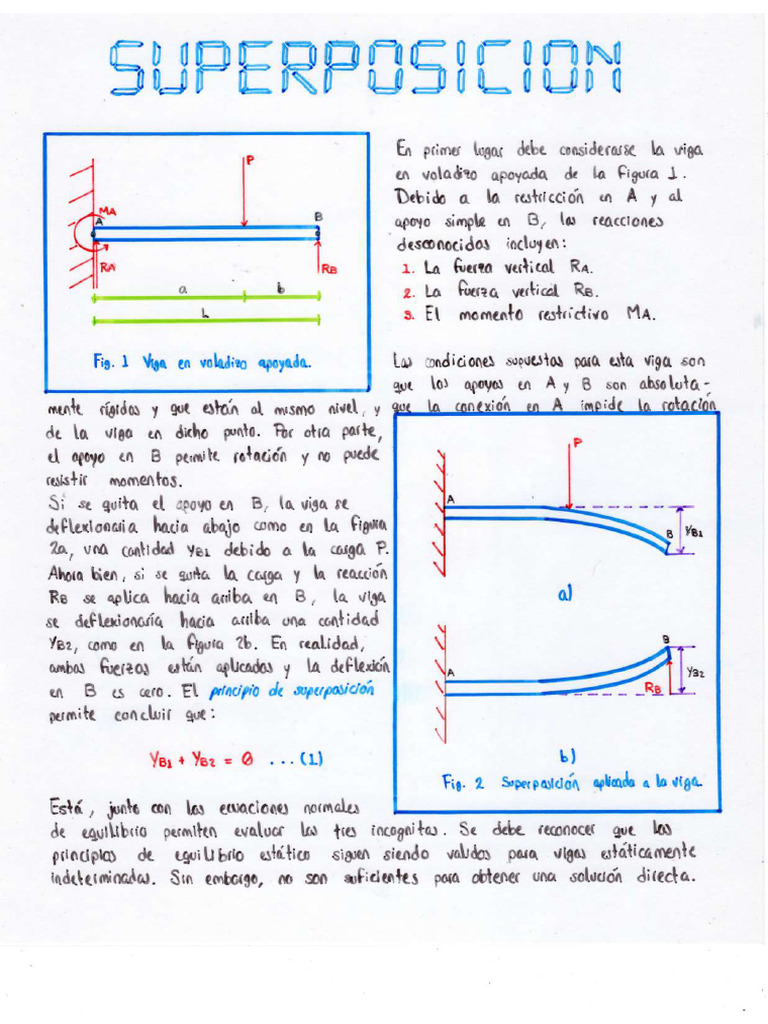 SUPERPOSICION
P
MA
A
B
RA
RB
a
b
L
Fig. 1 Viga en voladizo apoyada.
En primer lugar debe considerarse la viga
en voladizo apoyada de la figura 1.
Debido a la restricción en A y al
apoyo simple en B, las reacciones
desconocidas incluyen:
1. La fuerza vertical RA.
2. La fuerza vertical RB.
3. El momento restrictivo MA.
Las condiciones supuestas para esta viga son
que los apoyos en A y B son absoluta-
mente rígidos y que están al mismo nivel, y
que la conexión en A impide la rotación
de la viga en dicho punto. Por otra parte,
el apoyo en B permite rotación y no puede
resistir momentos.
Si se quita el apoyo en B, la viga se
deflexionaria hacia abajo como en la figura
2a, una cantidad YB1 debido a la carga P.
Ahora bien, si se quita la carga y la reacción
RB se aplica hacia arriba en B, la viga
se deflexionaría hacia arriba una cantidad
YB2, como en la figura 2b. En realidad,
ambas fuerzas están aplicadas y la deflexión
en B es cero. El principio de superposición
permite concluir que:
YB1 + YB2 = 0 ...(1)
P
A
B
YB1
a)
A
B
RB
YB2
b)
Fig. 2 Superposición aplicada a la viga.
Está, junto con las ecuaciones normales
de equilibrio permiten evaluar las tres incognitas. Se debe reconocer que los
principios de equilibrio estático siguen siendo validos para vigas estáticamente
indeterminadas. Sin embargo, no son suficientes para obtener una solución directa.